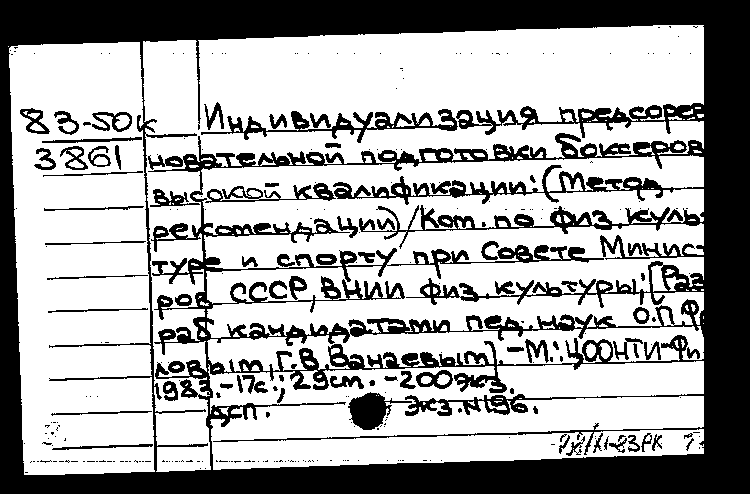 83-50к Индивидуализация предсорев
3861 новательной подготовки боксеров
высокой квалификации: (Метод.
рекомендации) / Ком. по физ. куль-
туре и спорту при Совете Минист
ров СССР, ВНИИ физ. культуры; [Раз
раб. кандидатами пед. наук О.П.Фр
ловым, Г.В.Ванаевым]. -М.: ЦООНТИ-Фи
1983. -17с.; 29см. -200экз.
ДСП. Экз.N196.